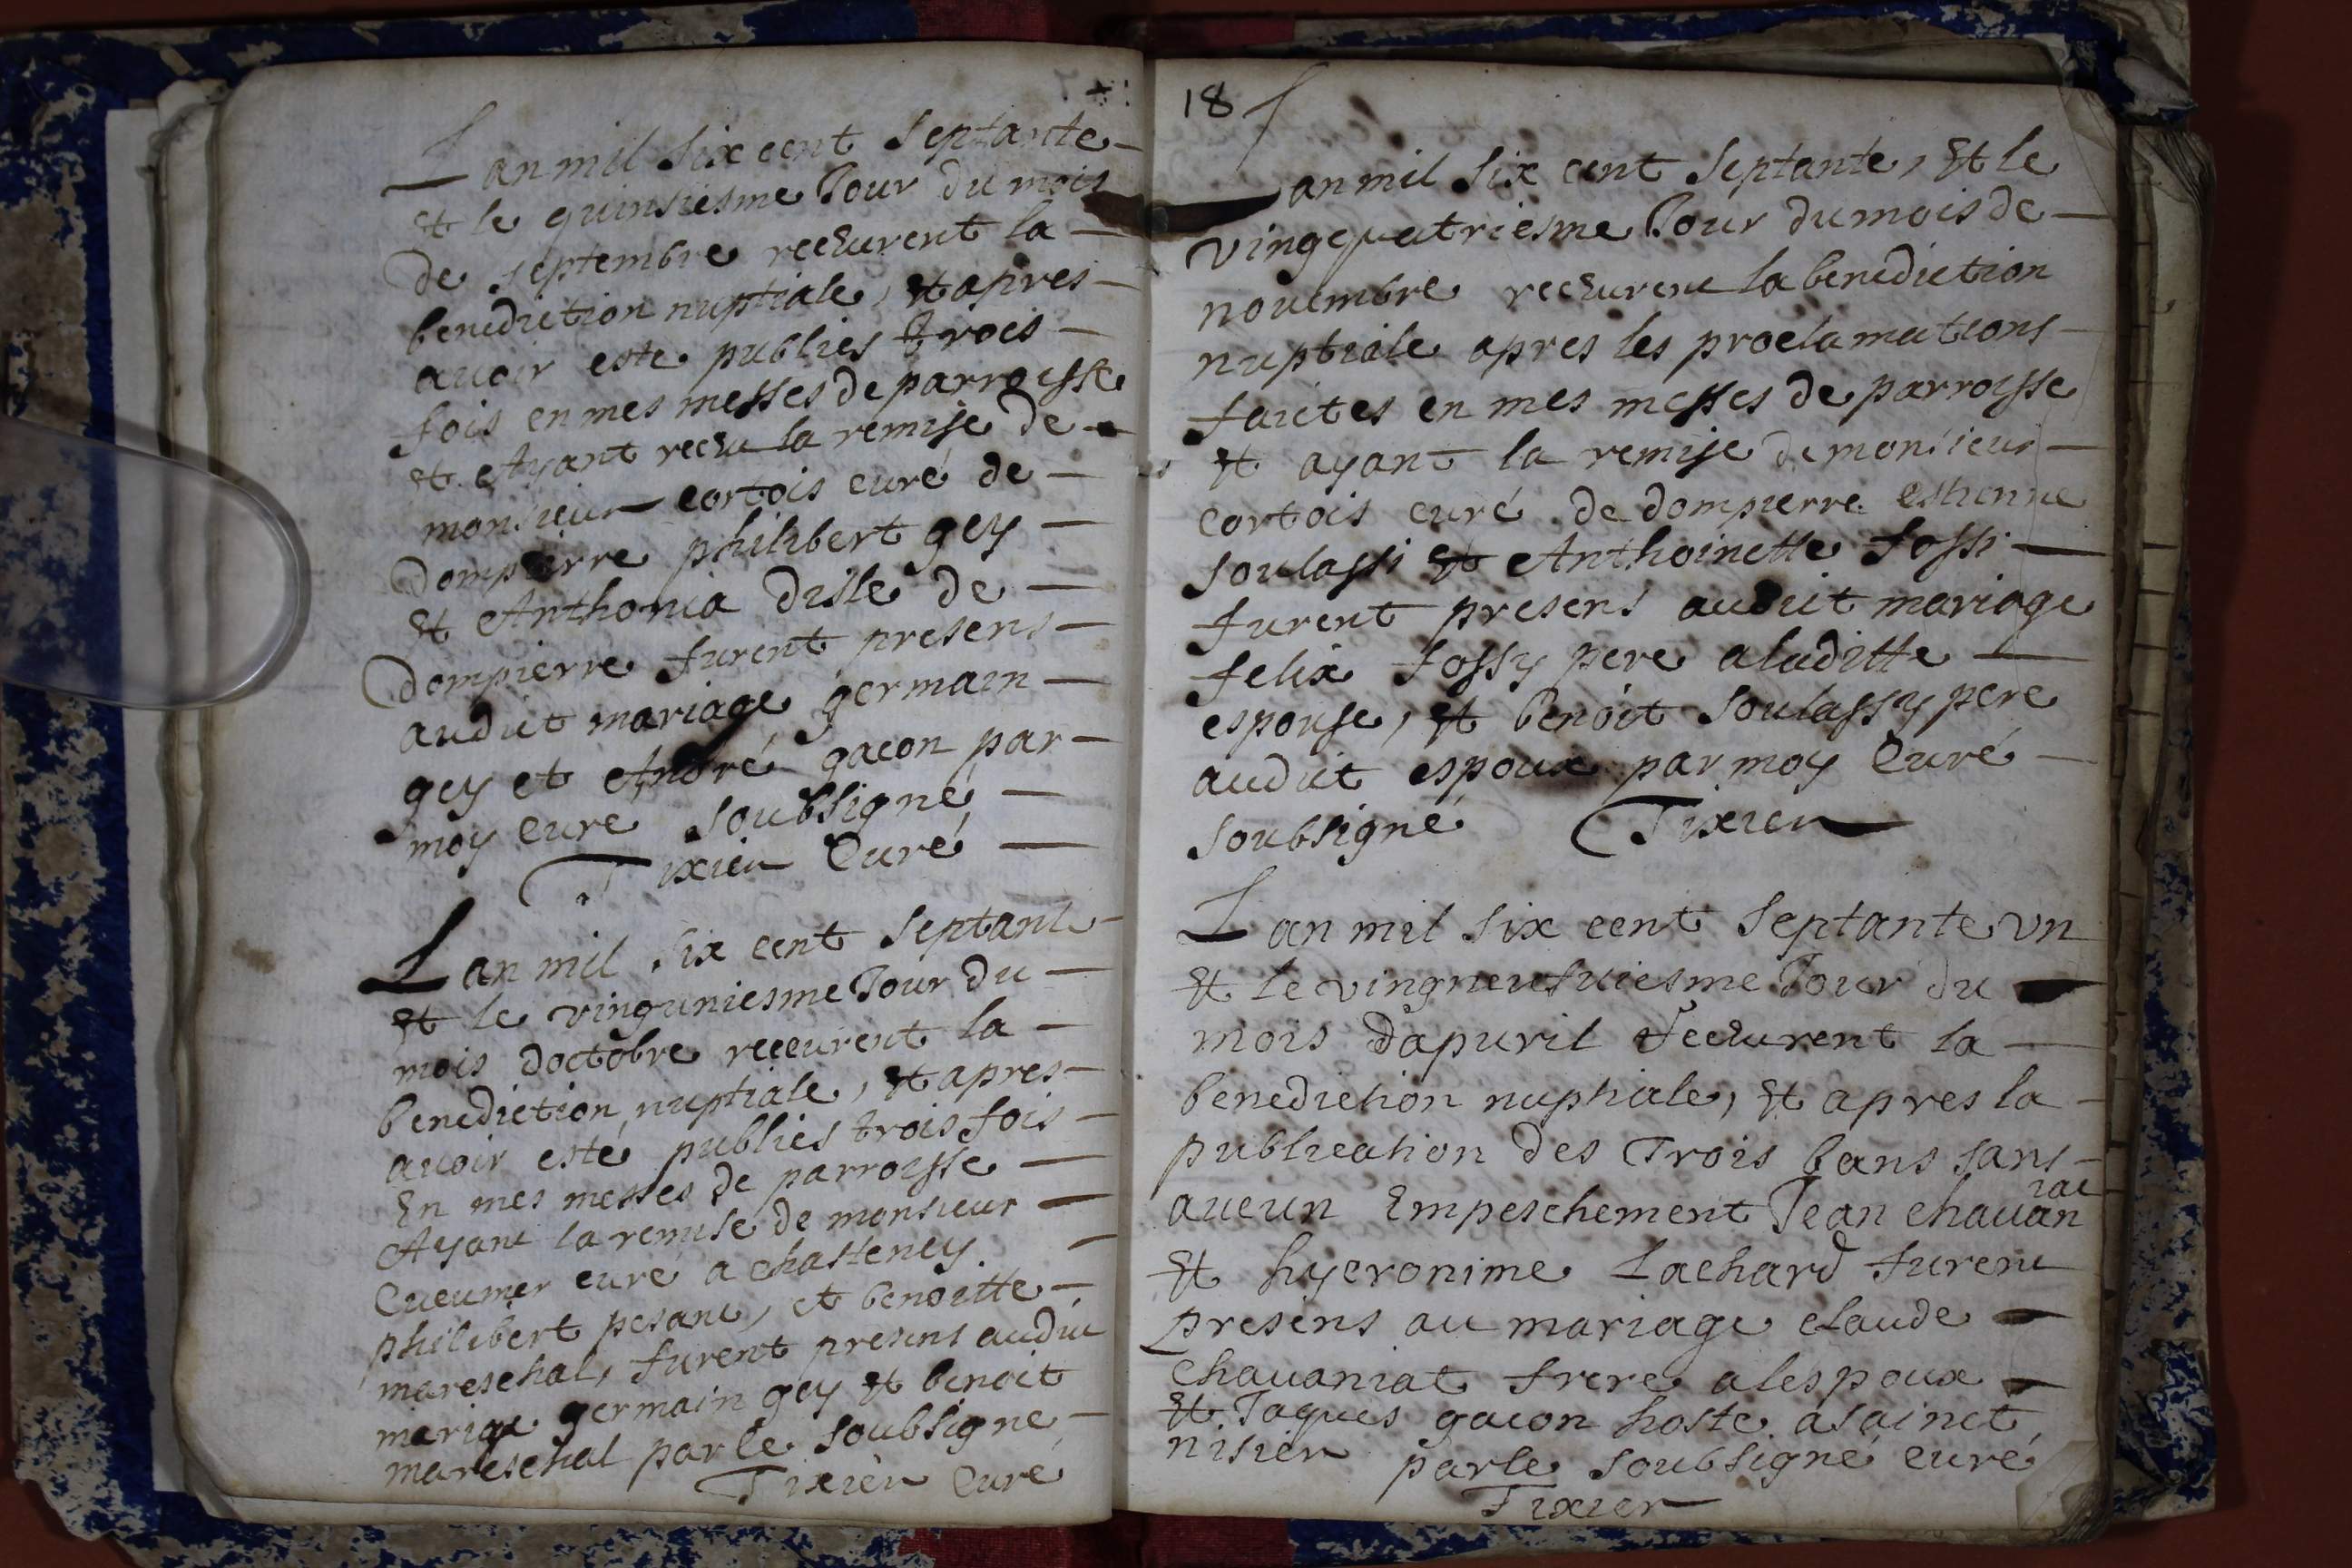 L an mil six cent septante
et le quinsiesme Jour du mois
de septembre recurent la
benediction nuptiale, et apres
avoir esté publies trois
fois en mes messes de parroisse
et Ayant receu la remise de
monsieur cortois curé de
Dompierre philibert gey
et Anthonia disle de
Dompierre furent presens
audict mariage germain
gey et André gacon par
moy curé soubsigné
Tixier Curé
L an mil six cent septante
et le vinguniesme Jour du
mois doctobre receurent la
benediction nuptiale, et apres
avoir esté publies trois fois
En mes messes de parroisse
Ayant la remise de monsieur
curé a chasteney
philibert pesant, et benoitte
mareschal, furent presens audict
mariage germain gey et benoit
mareschal par le soubsigne
Tixier Curé
18
L an mil six cent septante, et le
vingquatriesme Jour du mois de
novembre recurent la benediction
nuptiale apres les proclamations
faictes en mes messes de parroisse
et ayant la remise de monsieur
cortois curé de dompierre estienne
soulassi et Anthoinette fossi
furent presens audict mariage
felix fossy pere a laditte
espouse, et benoit soulassy pere
audict espoux par moy Curé
soubsigné Tixier
L an mil six cent septante un
et le vingneufviesme Jour du
mois dapuril recurent la
benediction nuptiale, et apres la
publication des Trois bans sans
aucun Empeschement Jean chavan
iat
et hyeronime Lachard furent
presens au mariage claude
chavaniat frere a lespoux
et Jaques gacon hoste a sainct
nisier par le soubsigné curé
Tixier